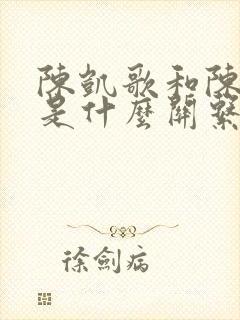 陳凱歌和陳
是什麼關繫
徐劍病